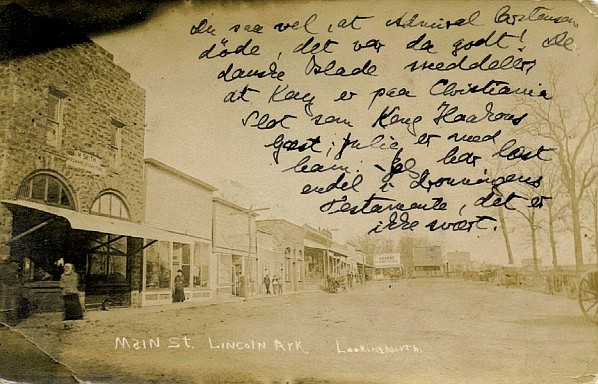 Du saa vel, at Admiral Carstensen
døde, det var da godt! De
danske Blade meddeler,
at Kay er paa Christiania
Slot som Kong Haakons
Gæst; Julie er med
ham. Jeg har læst
endel i Dronningens
Testamente, det er
ikke svært.
MAIN ST. LINCOLN ARK. Looking North.